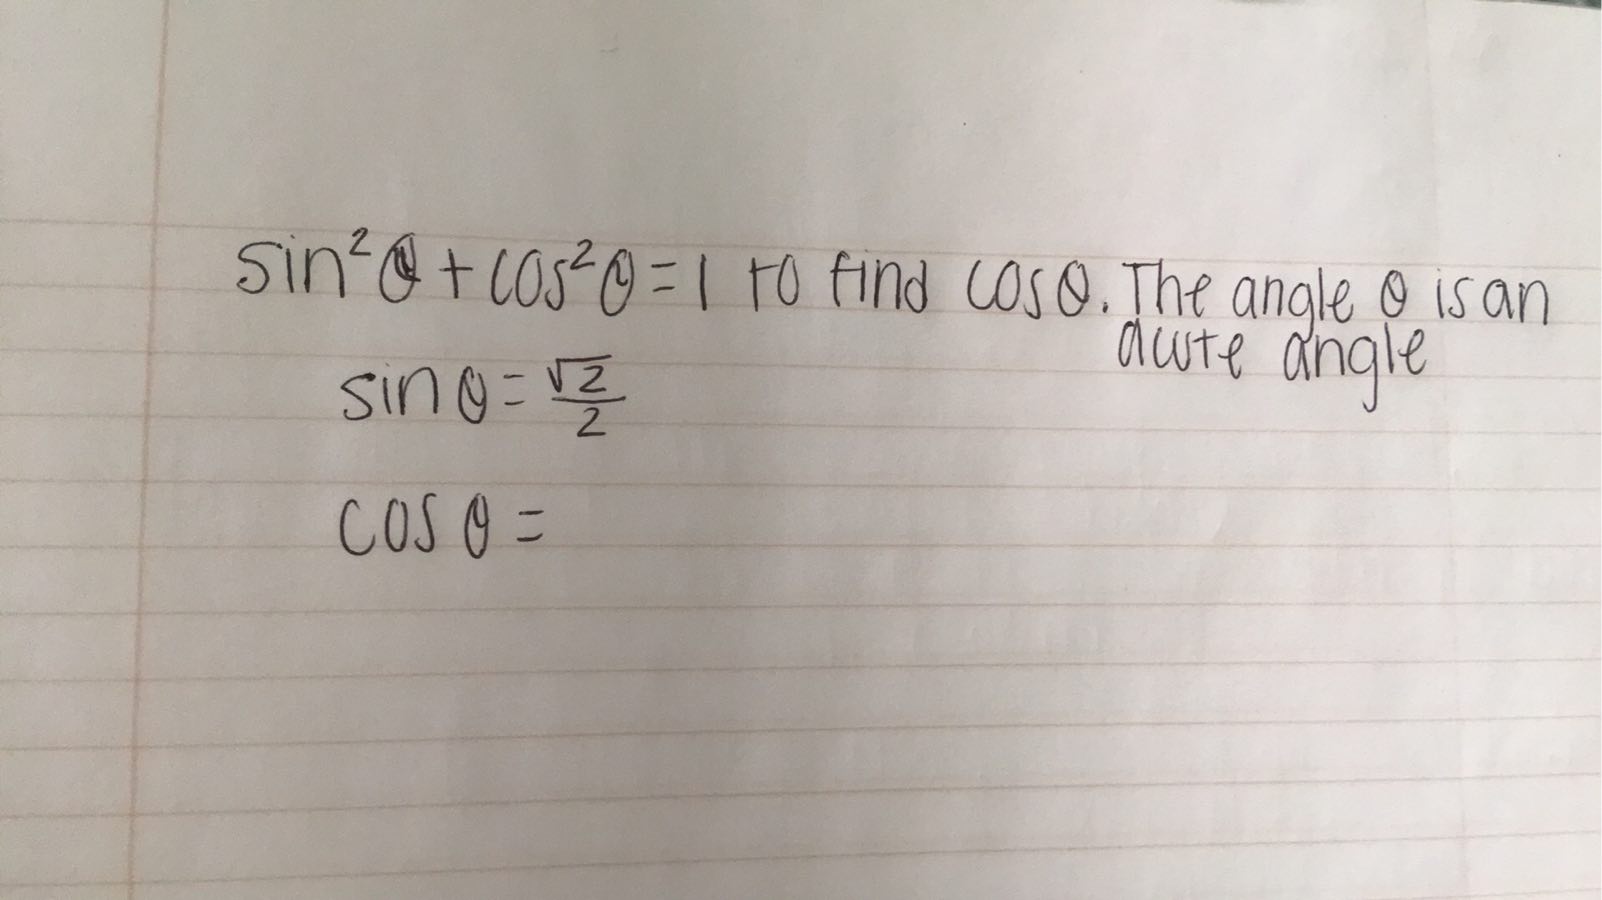 sin²θ + cos²θ = 1 to find cosθ. The angle θ is an
acute angle
sin θ = √2/2
cos θ =